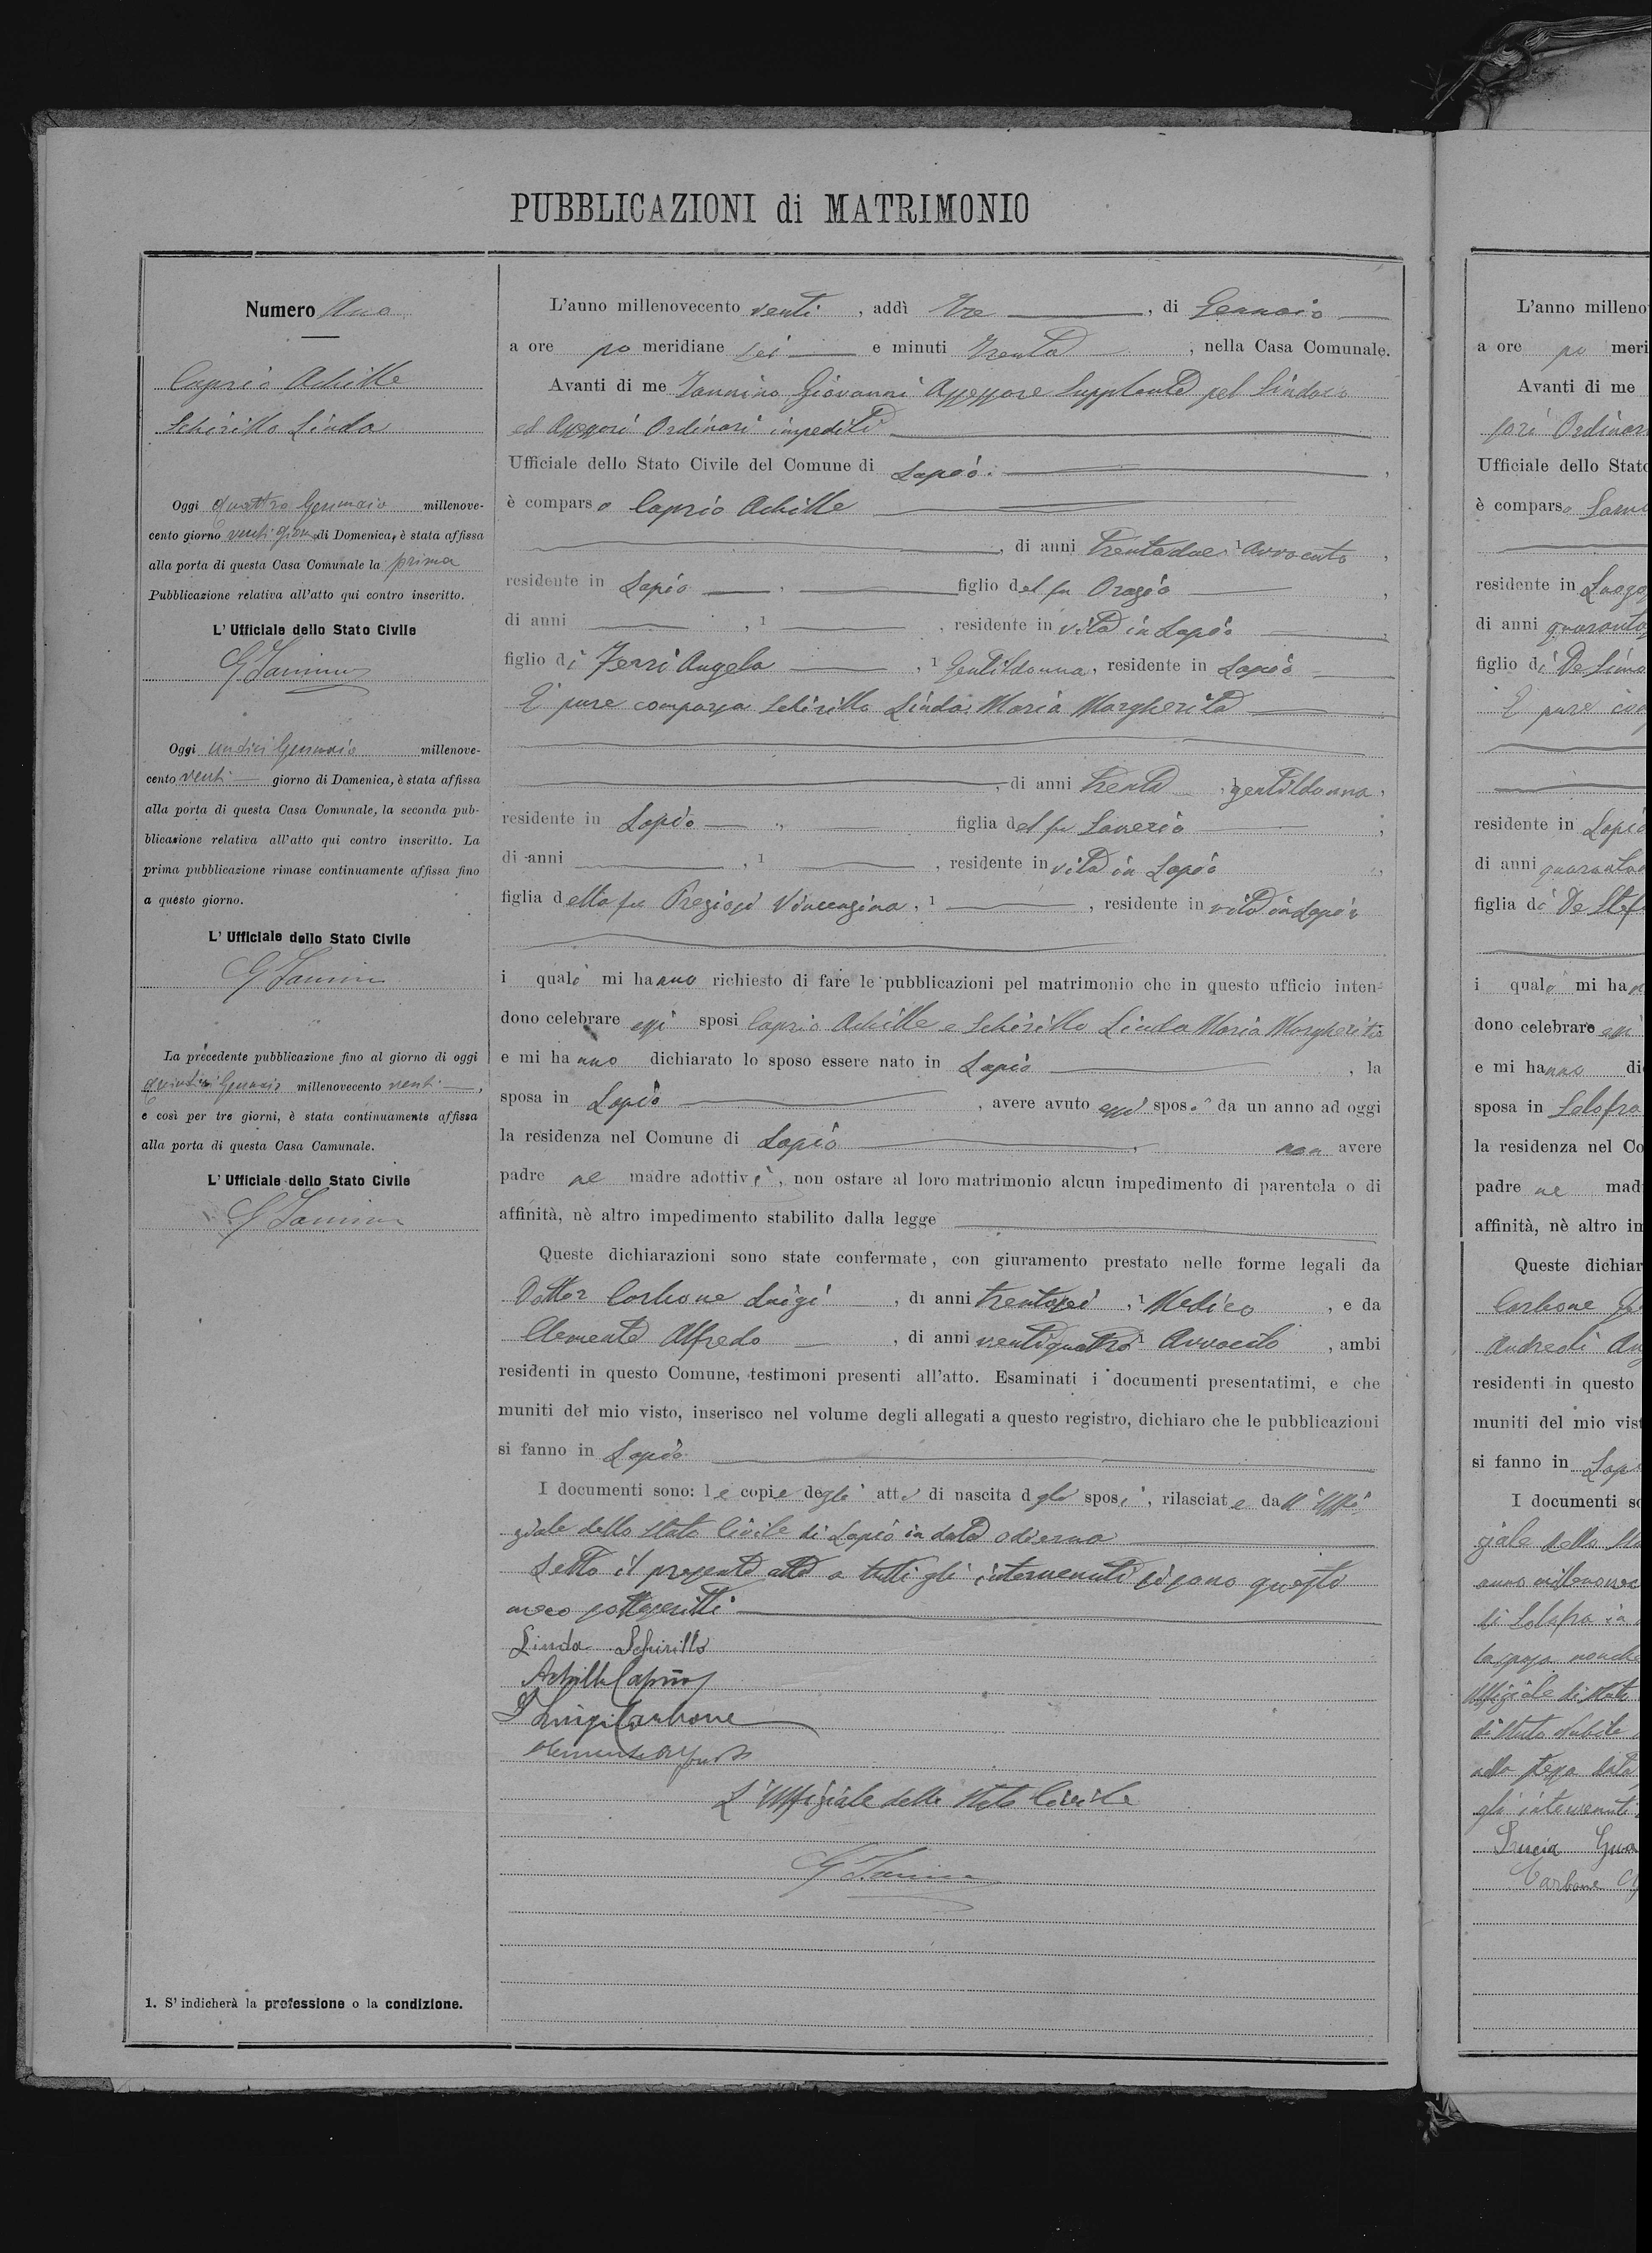 PUBBLICAZIONI di MATRIMONIO
Numero Uno
Caprio Achille
Schirillo Linda
Oggi quattro Gennaio millenove-
cento giorno venti giorno di Domenica, è stata affissa
alla porta di questa Casa Comunale la prima
Pubblicazione relativa all'atto qui contro inscritto.
L'Ufficiale dello Stato Civile
Oggi undici Gennaio millenove-
cento venti giorno di Domenica, è stata affissa
alla porta di questa Casa Comunale, la seconda pub-
blicazione relativa all'atto qui contro inscritto. La
prima pubblicazione rimase continuamente affissa fino
a questo giorno.
L'Ufficiale dello Stato Civile
La precedente pubblicazione fino al giorno di oggi
quindici Gennaio millenovecento venti,
e così per tre giorni, è stata continuamente affissa
alla porta di questa Casa Camunale.
L'Ufficiale dello Stato Civile
1. S'indicherà la professione o la condizione.
L'anno millenovecento venti, addì tre, di Gennaio
a ore po meridiane sei e minuti trenta, nella Casa Comunale.
Avanti di me Giovanni Assessore Supplente pel Sindaco
ed Assessori Ordinari impediti
Ufficiale dello Stato Civile del Comune di Lapio.
è comparso Caprio Achille
, di anni trentadue, 1 avvocato,
residente in Lapio figlio del fu Orazio,
di anni , 1 , residente in vita in Lapio
figlio di Ferri Angela, 1 Gentildonna, residente in Lapio
È pure comparsa Schirillo Linda Maria Margherita
, di anni trenta, 1 gentildonna,
residente in Lapio figlia del fu Saverio,
di anni , 1 , residente in vita in Lapio,
figlia della fu Preziosi Vincenzina, 1 , residente in vita in Lapio
i quali mi hanno richiesto di fare le pubblicazioni pel matrimonio che in questo ufficio inten-
dono celebrare essi sposi Caprio Achille e Schirillo Linda Maria Margherita
e mi hanno dichiarato lo sposo essere nato in Lapio, la
sposa in Lapio, avere avuto essi sposi da un anno ad oggi
la residenza nel Comune di Lapio, non avere
padre nè madre adottivi, non ostare al loro matrimonio alcun impedimento di parentela o di
affinità, nè altro impedimento stabilito dalla legge
Queste dichiarazioni sono state confermate, con giuramento prestato nelle forme legali da
Dottor Carbone Luigi, di anni trentasei, 1 Medico, e da
Clemente Alfredo, di anni ventiquattro 1 Avvocato, ambi
residenti in questo Comune, testimoni presenti all'atto. Esaminati i documenti presentatimi, e che
muniti del mio visto, inserisco nel volume degli allegati a questo registro, dichiaro che le pubblicazioni
si fanno in Lapio
I documenti sono: le copie degli atti di nascita dgli sposi, rilasciate dall'Uffi-
ziale dello Stato Civile di Lapio in data odierna
Letto il presente atto a tutti gli intervenuti si sono questi
meco sottoscritti
Linda Schirillo
Achille Caprio
Luigi Carbone
L'Uffiziale dello Stato Civile
L'anno milleno
a ore po meri
Avanti di me
sori Ordinar
Ufficiale dello Stato
è comparso
residente in
di anni
figlio di De
È pure
residente in Lapio
di anni
figlia di De
i quali mi ha
dono celebrare essi
e mi hanno di
sposa in Solofra
la residenza nel Co
padre ne mad
affinità, nè altro im
Queste dichiar
Carbone
residenti in questo
muniti del mio vist
si fanno in Lap
I documenti so
di Solofra in
gli intervenuti
Lucia
Carbone